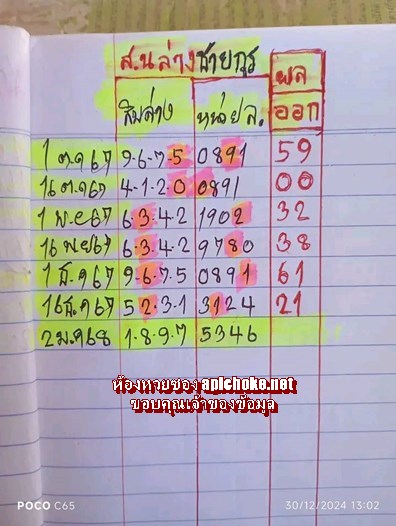 ส.น ล่าง ชายกูร
ผล
ออก
สิบล่าง หน่วยล.
1 ต.ค 67 9-6-7-5 0891 59
16 ต.ค 67 4-1-2-0 0891 00
1 พ.ย 67 6-3-4-2 1902 32
16 พ.ย 67 6-3-4-2 9780 38
1 ธ.ค 67 9-6-7-5 0891 61
16 ธ.ค 67 5 2-3-1 3124 21
2 ม.ค 68 1-8-9-7 5346
ห้องหวยซอง apichoke.net
ขอบคุณเจ้าของข้อมูล
POCO C65 30/12/2024 13:02